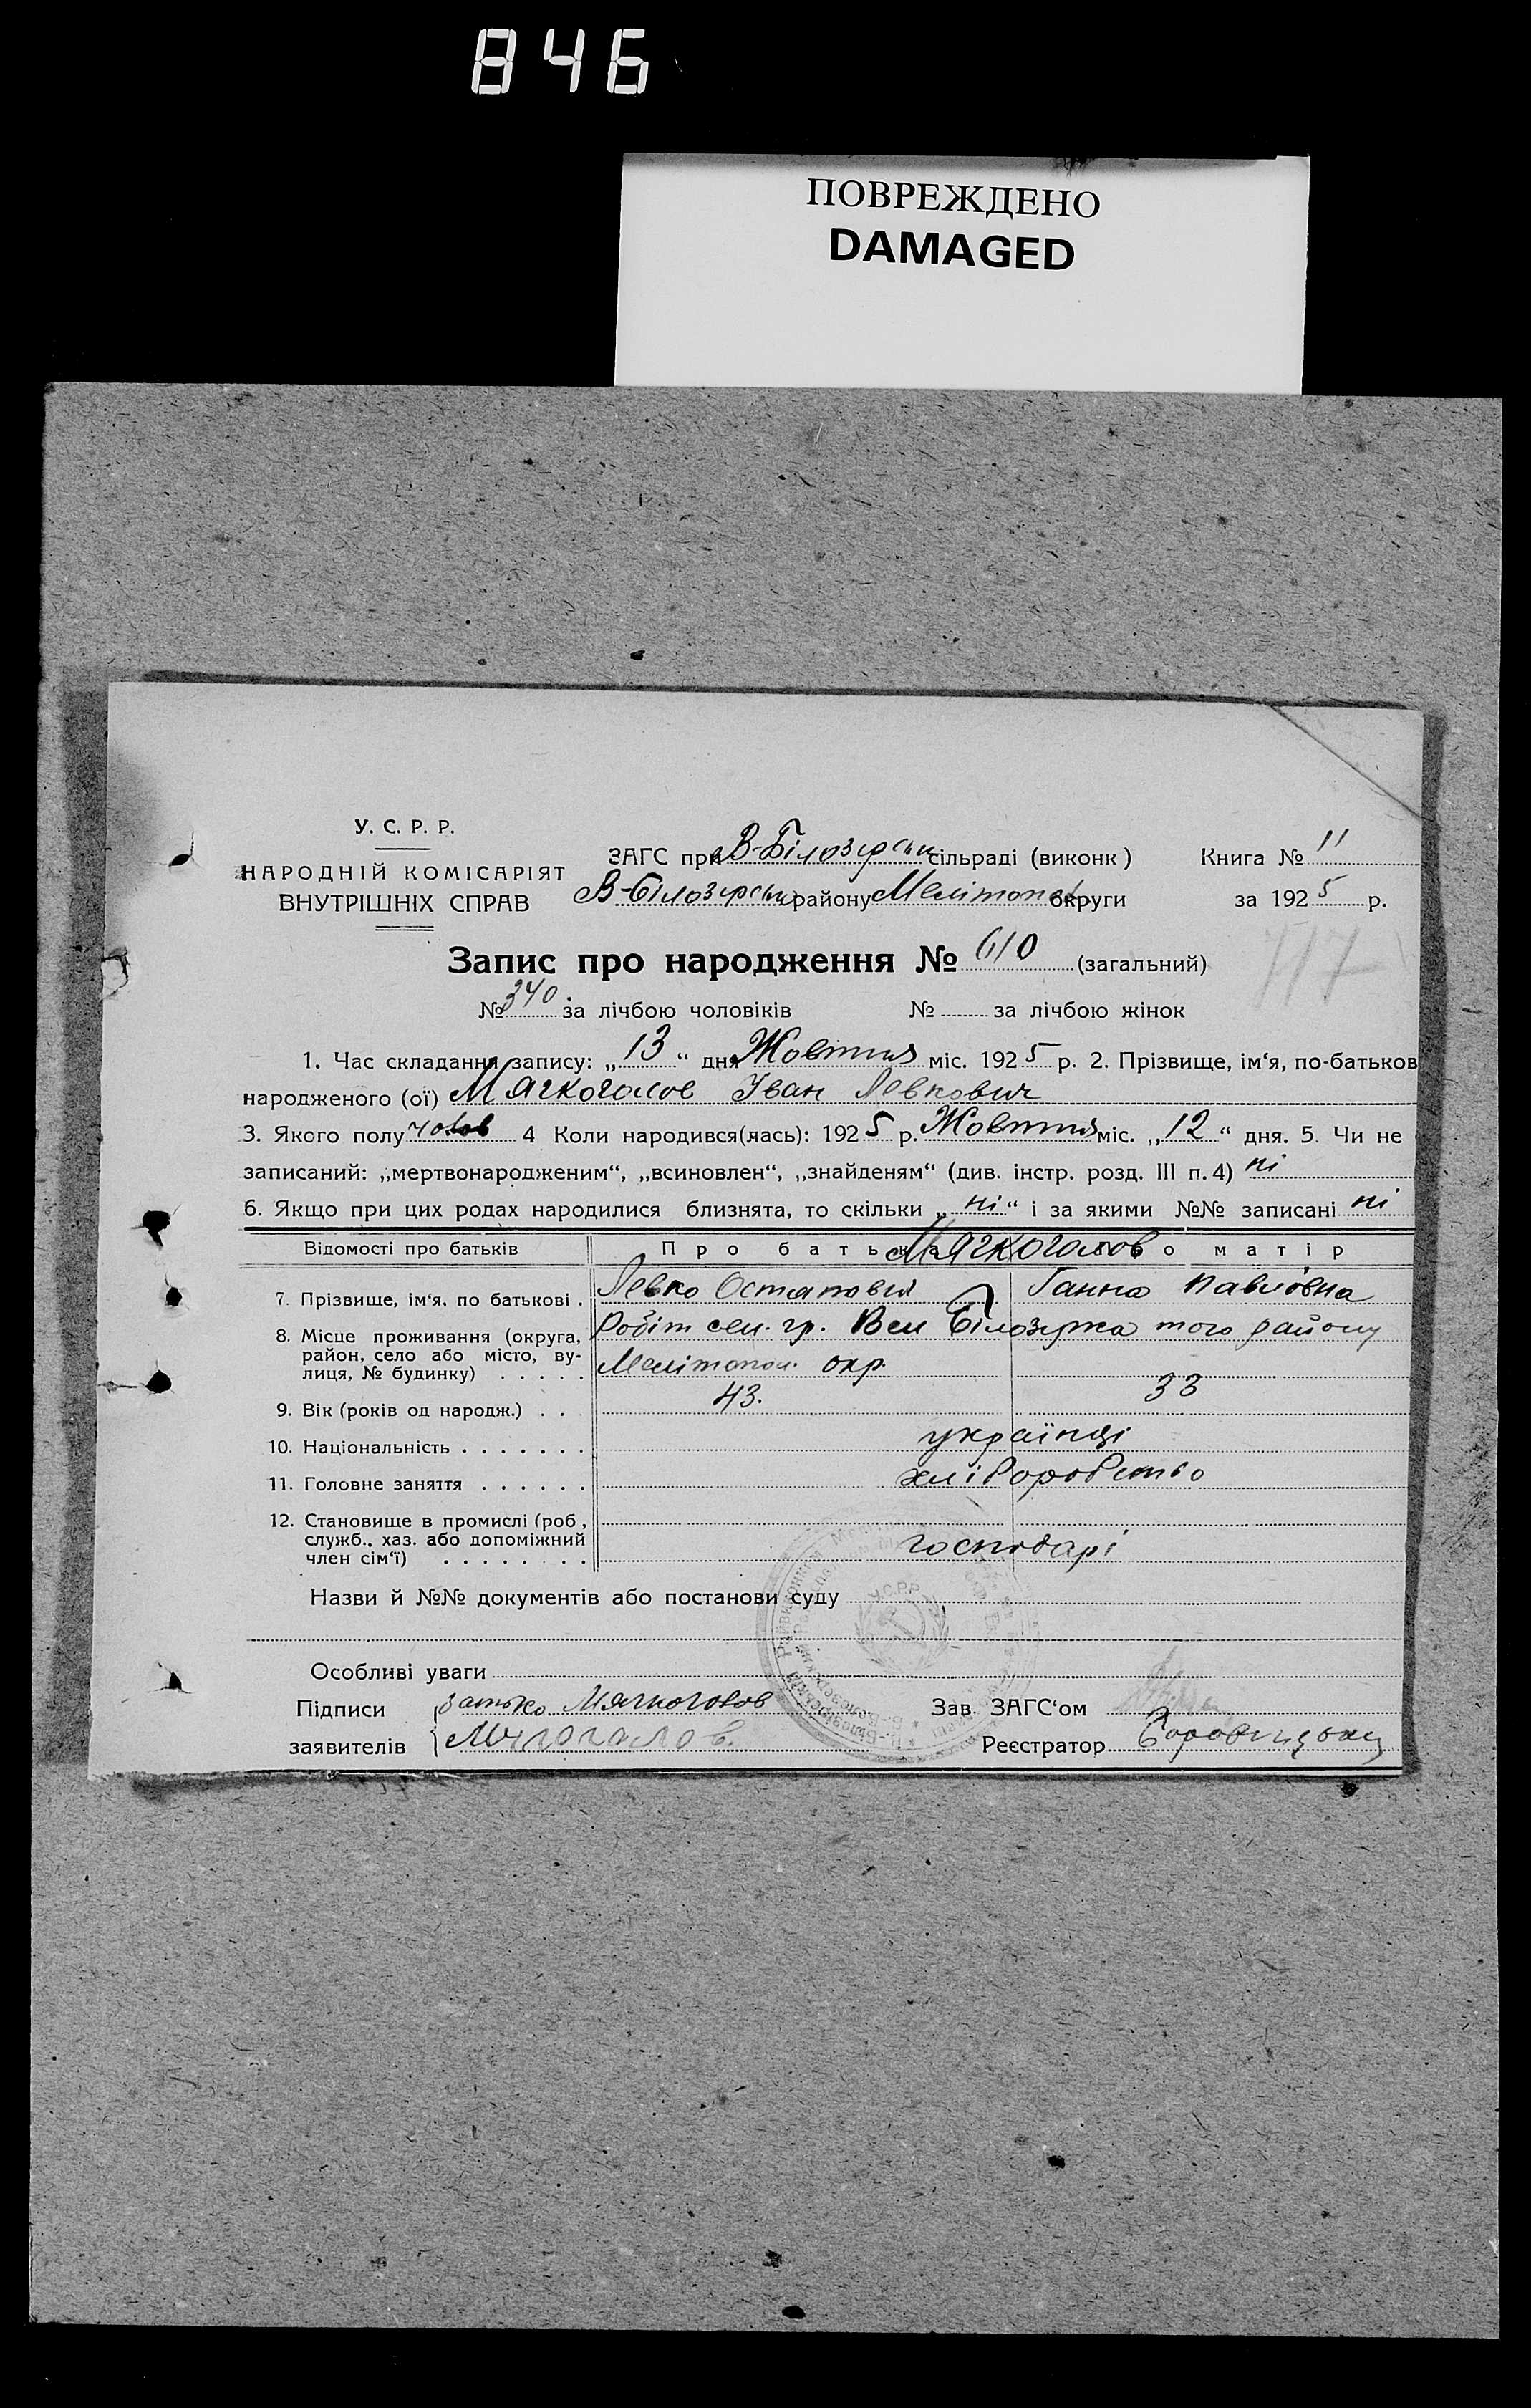 846
ПОВРЕЖДЕНО
DAMAGED
У. С. Р. Р.
НАРОДНІЙ КОМІСАРІЯТ
ВНУТРІШНІХ СПРАВ
ЗАГС при В-Білозерськ сільраді (виконк) Книга № 11
В-Білозерськ району Мелітопол округи за 1925 р.
Запис про народження № 610 (загальний)
717
№ 340 за лічбою чоловіків № за лічбою жінок
1. Час складання запису: „13“ дня Жовтня міс. 1925 р. 2. Прізвище, ім‘я, по-батьков
народженого (ої) Мягкоголов Іван Левкович
3. Якого полу чолов 4 Коли народився(лась): 1925 р. Жовтня міс. „12“ дня. 5. Чи не
записаний: „мертвонародженим“, „всиновлен“, „знайденям“ (див. інстр. розд. III п. 4) ні
6. Якщо при цих родах народилися близнята, то скільки „ні“ і за якими №№ записані ні
Відомості про батьків Про батька Мягкоголов Про матір
7. Прізвище, ім‘я, по батькові . Левко Остапович Ганна Павловна
8. Місце проживання (округа, район, село або місто, вулиця, № будинку) . . . . . Робіт сел. гр. Вел Білозерка того району
Мелітопол. окр.
9. Вік (років од народж.) . . . 43. 33
10. Національність . . . . . . . українці
11. Головне заняття . . . . . . хліборобство
12. Становище в промислі (роб,
служб., хаз. або допоміжний
член сім‘ї) . . . . . . . . господарі
Назви й №№ документів або постанови суду
У.С.Р.Р.
Особливі уваги
Підписи Мягкоголов Зав. ЗАГС‘ом
заявителів Реєстратор